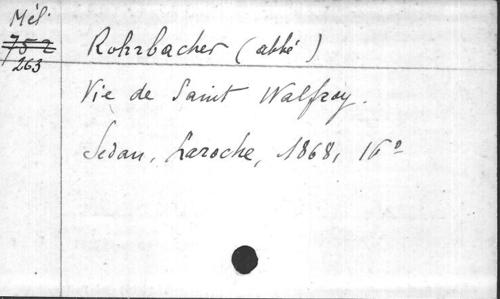 Mél.
752
263
Rohrbacher (abbé)
Vie de Saint Walfroy.
Sedan, Laroche, 1868, 16º